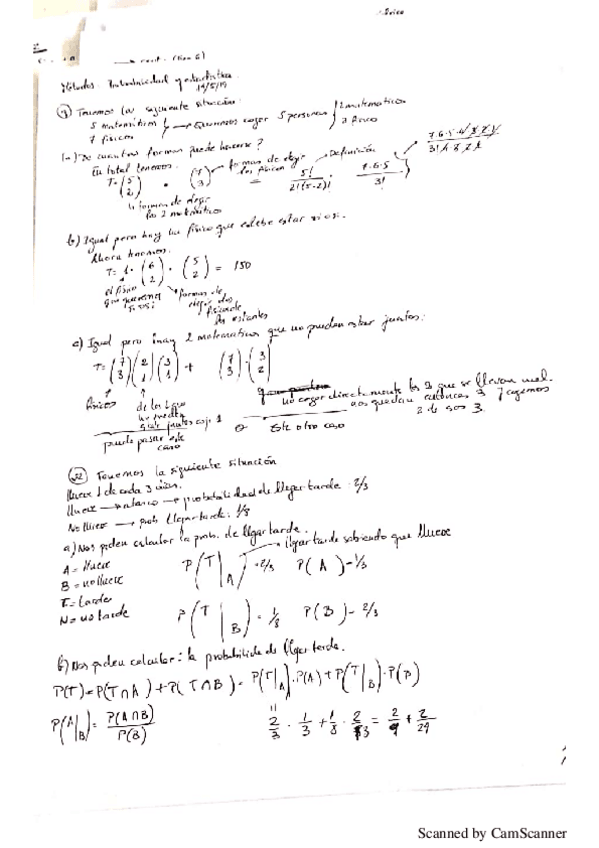 Probabilidad y estadística
19/5/19
Tenemos la siguiente situación:
5 matemáticos
7 físicos
Queremos coger 5 personas
2 matemáticos
3 físico
De cuantas formas puede hacerse?
En total tenemos.
T = (5 2) · (7 3) = 5! / 2!(5-2)! · 7·6·5 / 3!
formas de elegir los físicos
Definición
formas de elegir los 2 matemático
b) Igual pero hay un físico que debe estar si o si.
Ahora haremos:
T = 1 · (6 2) · (5 2) = 150
el físico que queremos
formas de elegir dos físicos de los restantes
c) Igual pero hay 2 matematicos que no pueden estar juntos:
T = (7 3) (2 1) (3 1) + (7 3) · (3 2)
físicos
de los 2 que no pueden estar juntos cojo 1
puede pasar este caso
o
Este otro caso
no coger directamente los 2 que se llevan mal.
nos quedan entonces 3 y cogemos
2 de esos 3.
22 Tenemos la siguiente situación
llueve 1 de cada 3 días.
llueve → atasco → probabilidad de llegar tarde · 2/3
No llueve → prob llegar tarde: 1/8
a) Nos piden calcular la prob. de llegar tarde.
A = llueve
B = no llueve
T = tarde
N = no tarde
P(T|A) = 2/3 P(A) = 1/3
llegar tarde sabiendo que llueve
P(T|B) = 1/8 P(B) = 2/3
b) Nos piden calcular: la probabilidad de llegar tarde.
P(T) = P(T∩A) + P(T∩B) = P(T|A)·P(A) + P(T|B)·P(B)
P(A|B) = P(A∩B) / P(B)
2/3 · 1/3 + 1/8 · 2/3 = 2/9 + 2/24
Scanned by CamScanner